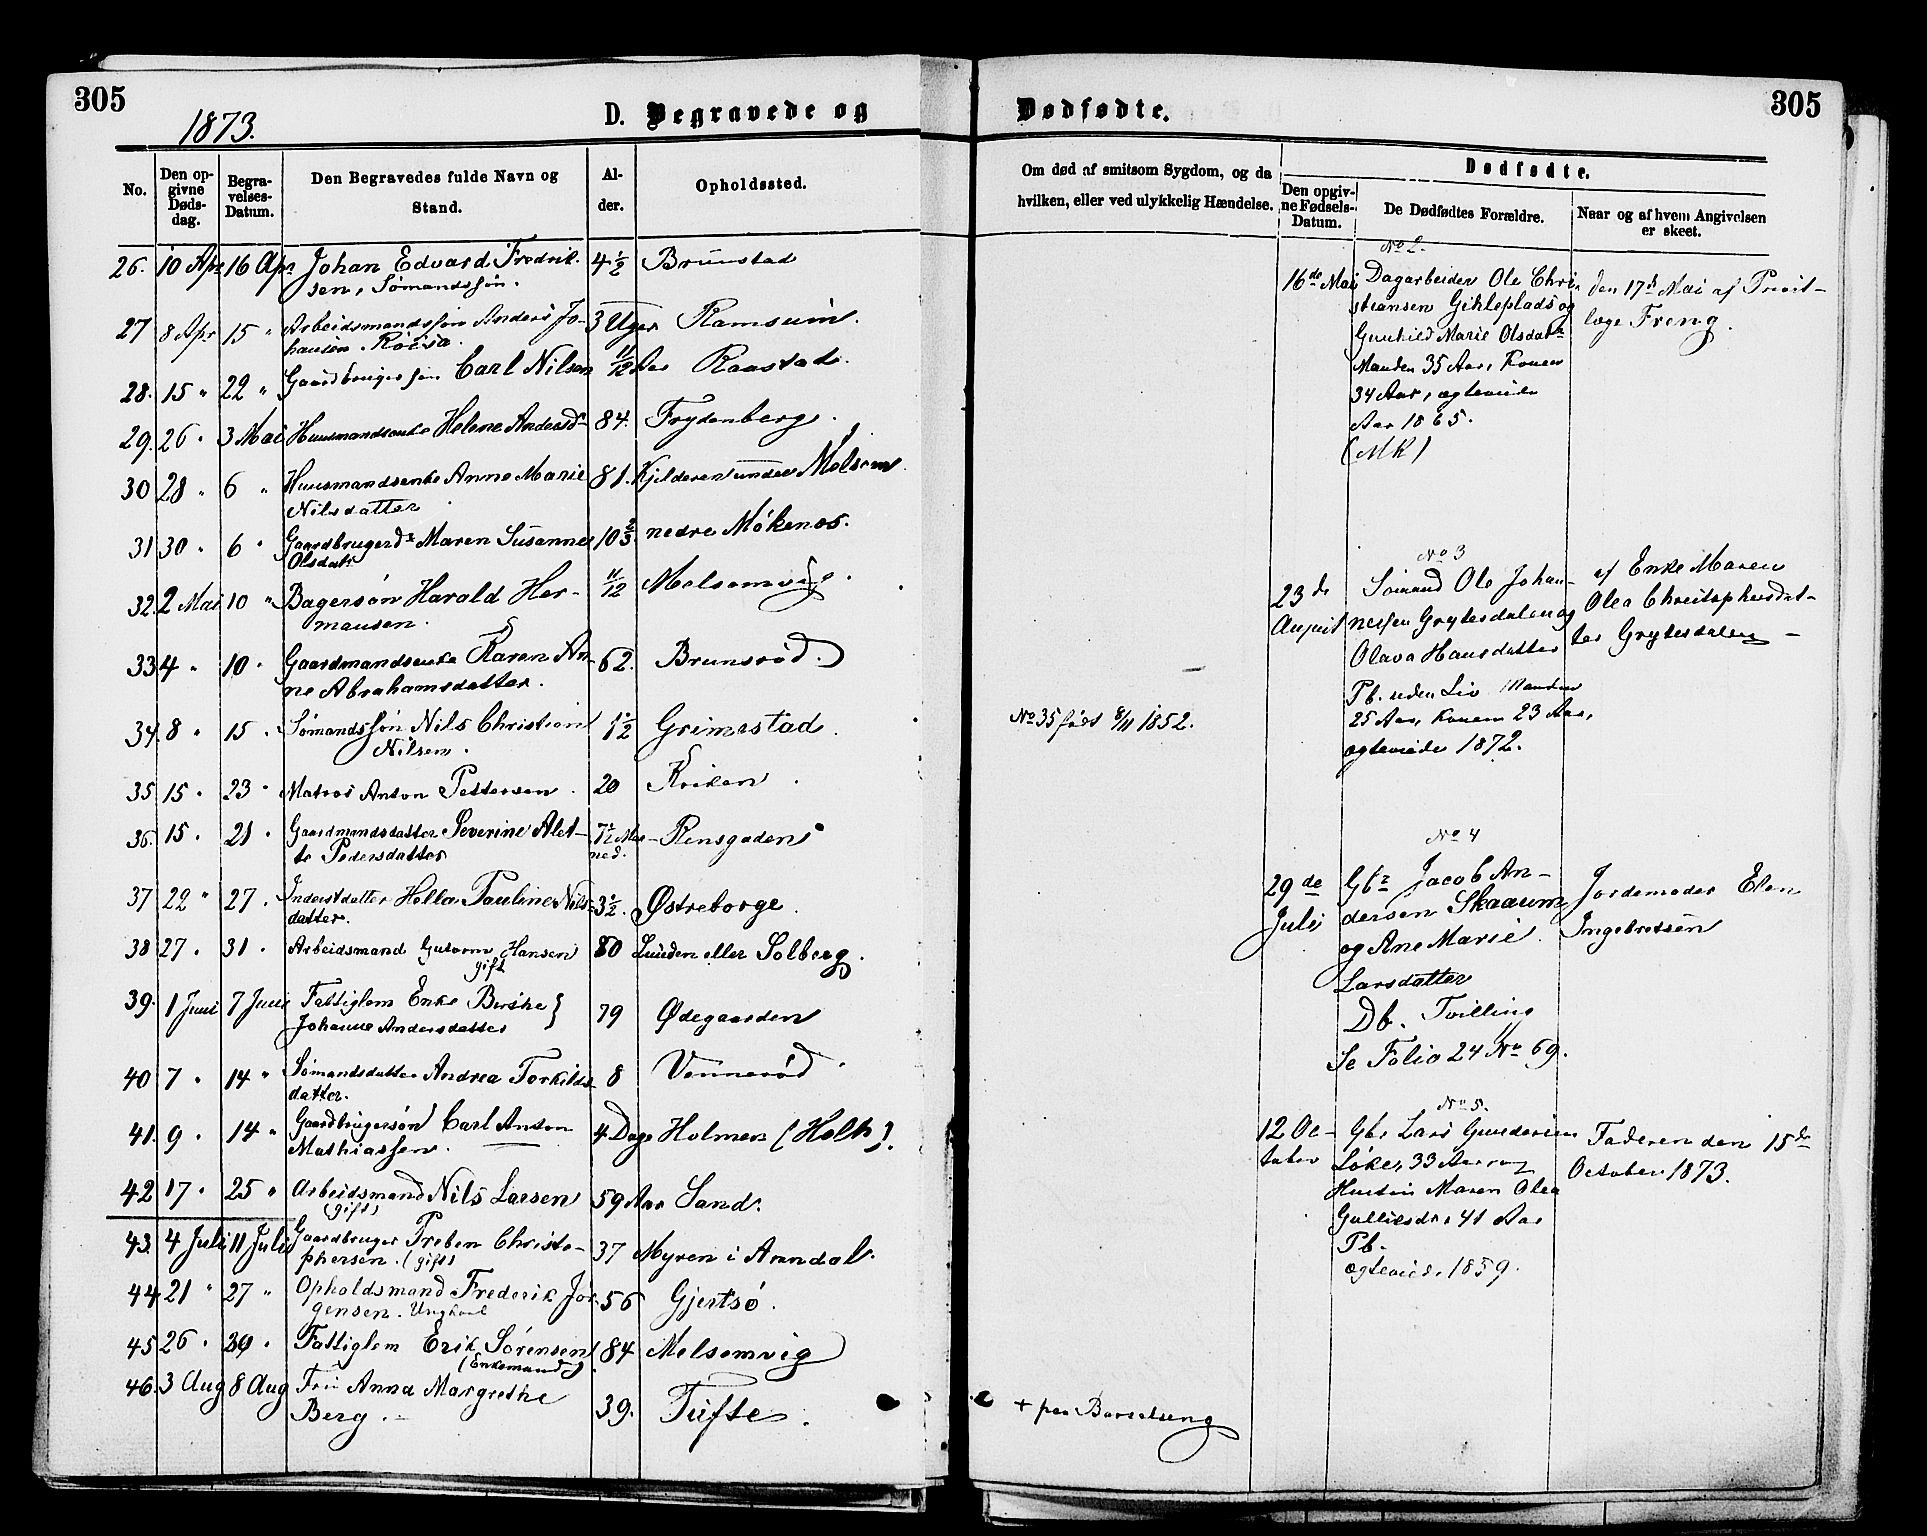 305
1873.
D. Begravede og
No.
Den opgivne Dødsdag.
Begravelses-Datum.
Den Begravedes fulde Navn og Stand.
Alder.
Opholdssted.
26. 10 Apr 16 Apr Johan Edvard Fredrik- 4 1/2 Brunstad
sen, Sømandssøn.
27 8 Apr 15 " Arbeidsmandssøn Anders Jo- 3 Uger Ramsum.
hansen
28. 15 " 22 " Gaardbrugersøn Carl Nilsen 11/12 Aar Raastad.
29. 26 " 3 Mai Huusmandsenke Helene Andersdr 84. Frydenberg.
30 28 " 6 " Huusmandsenke Anne Marie 81. Kjilderen under Melsom
Nilsdatter
31 30 " 6 " Gaardbrugerdr Maren Susanne 10 2/3 nedre Møkenæs.
Olsdatr
32. 2 Mai 10 " Bagersøn Harald Her- 11/12 Melsomvig.
mansen.
33 4 " 10 " Gaardmandsenke Karen An- 62. Brunsrød.
ne Abrahamsdatter.
34. 8 " 15 " Sømandssøn Nils Christian 1 1/2 Grimestad.
Nilsen.
35 15 " 23 " Matros Anton Pettersen 20 Kriken
36. 15 " 21 " Gaardmandsdatter Severine Alet- 7 1/2 Maa- Rensgaden
te Pedersdatter ned.
37 22 " 27 " Inderstdatter Hella Pauline Nils- 3 1/2. Østreborge.
datter.
38 27 " 31 " Arbeidsmand Gutorm Hansen 80 Lunden eller Solberg.
gift
39. 1 Juni 7 Juni Fattiglem Enke Berthe } 79 Ødegaarden
Johanne Andersdatter
40 7 " 14 " Sømandsdatter Andrea Torkilds- 8 Vennerød
datter.
41. 9 " 14 " Gaardbrugersøn Carl Anton 4 Dage Holmen (Holt).
Mathiassen.
42 17 " 25 " Arbeidsmand Nils Larsen 59 Aar Sand.
(gift)
43. 4 Juli 11 Juli Gaardbruger Preben Christo- 37 Myren i Arndal.
phersen. (gift)
44 21 " 27 " Opholdsmand Frederik Jør- 56 Gjertsø.
gensen. Ungkarl
45 26 " 30 " Fattiglem Erik Sørensen 84 Melsomvig
(Enkemand).
46. 3 Aug 8 Aug Fru Anna Margrethe 39. Tufte.
Berg.
305
Dødfødte.
Om død af smitsom Sygdom, og da
hvilken, eller ved ulykkelig Hændelse.
Dødfødte.
Den opgivne Fødsels-Datum.
De Dødfødtes Forældre.
Naar og af hvem Angivelsen
er skeet.
No 35 født 8/11 1852.
+ paa Barselseng
No 2.
16de Mai Dagarbeider Ole Chri- den 17de Mai af Privat-
stiansen Gikleplads og læge Freng.
Gunhild Marie Olsdatr
Manden 35 Aar, Konen
34 Aar, ægteviede
Aar 1865.
(MK)
No 3
23de Sømand Ole Johan- af Enke Maren
August nessen Grytesdalen og Olea Christophersdat-
Olava Hansdatter ter Grytesdalen
Pb. uden Liv Manden
25 Aar, Konen 23 Aar,
ægteviede 1872.
No 4
29de Gbr Jacob An- Jordemoder Elen
Juli dersen Skaaum Ingebretsen
og Ane Marie
Larsdatter
Db. Tvilling
Se Folio 24 No 69.
No 5.
12 Oc- Gbr Lars Gundersen Faderen den 15de
tober Løke, 33 Aar og October 1873.
Hustru Maren Olea
41 Aar
Pb.
ægteviede 1859.